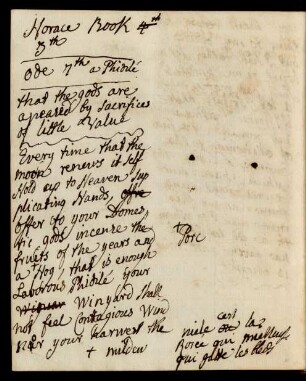 Horace Book 4th
3th
Ode 7th a Phidilé
that the gods are
apeared by sacrifices
of little Value
Every time that the
moon renews it self
Hold up to Heaven Sup
plicating Hands, offre
Offer to your Domes,
tic gods incense the
fruits of the years and
a Hog, that is enough
Laborous Phidilé your
Winyard Shall
not feel Contagious Wind
nor your Harvest the
+ mildew
+ Porc
cest la
niele
Roice qui
qui gate les bleds